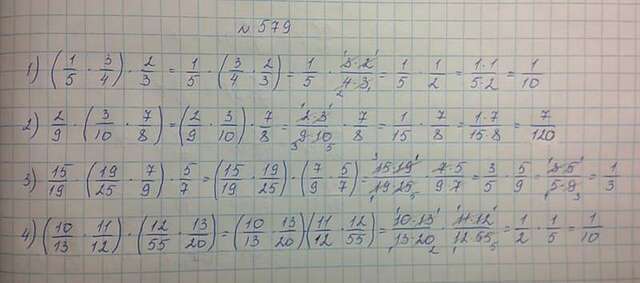 №579
1) (1/5 · 3/4) · 2/3 = 1/5 · (3/4 · 2/3) = 1/5 · 3·2/4·3 = 1/5 · 1/2 = 1·1/5·2 = 1/10
2) 2/9 · (3/10 · 7/8) = (2/9 · 3/10) · 7/8 = 2·3/9·10 · 7/8 = 1/15 · 7/8 = 1·7/15·8 = 7/120
3) 15/19 · (19/25 · 7/9) · 5/7 = (15/19 · 19/25) · (7/9 · 5/7) = 15·19/19·25 · 7·5/9·7 = 3/5 · 5/9 = 3·5/5·9 = 1/3
4) (10/13 · 11/12) · (12/55 · 13/20) = (10/13 · 13/20) (11/12 · 12/55) = 10·13/13·20 · 11·12/12·55 = 1/2 · 1/5 = 1/10